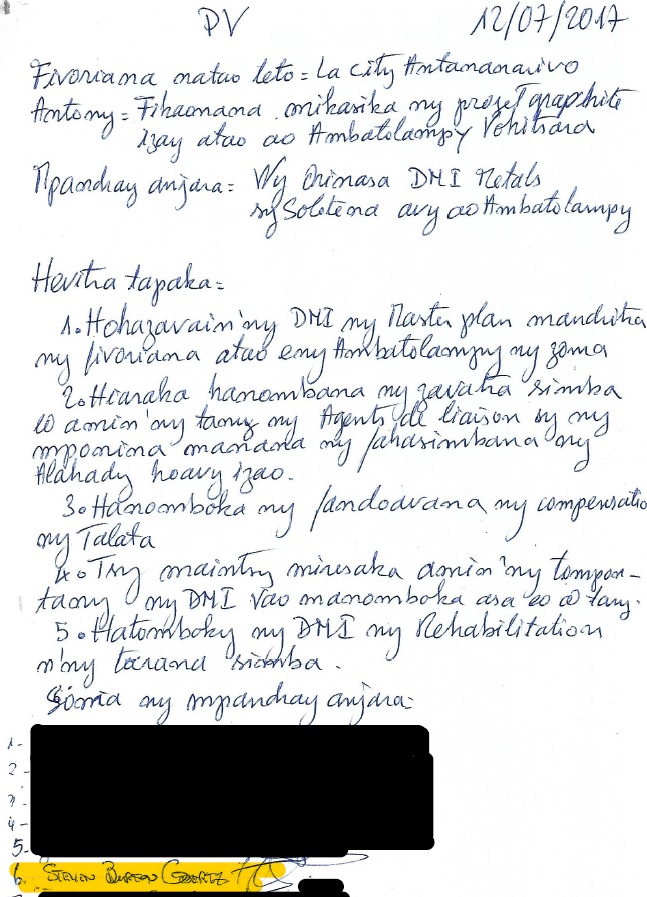 PV 12/07/2017
Fivoriana natao teto = La City Antananarivo
Antony = Fifaonana mikasika ny projet graphite
izay atao ao Ambatolampy Vohitsara
Mpandray anjara = Ny Orinasa DMI Metals
sy Solotena avy ao Ambatolampy
Hevitra tapaka =
1. Hohazavain'ny DMI ny Master plan mandritra
ny fivoriana atao eny Ambatolampy ny zoma
2. Hiaraka hanombana ny zavatra simba
eo amin'ny tany ny Agents de liaison sy ny
mponina manana ny fahasimbana ny
Alahady hoavy izao.
3. Hanomboka ny fandoavana ny compensatio
ny Talata
4. Tsy maintsy miresaka amin'ny tompon-
tany ny DMI vao manomboka asa eo @ tany.
5. Hatomboky ny DMI ny Rehabilitation
n'ny simba.
Sonia ny mpandray anjara =
1-
2-
3-
4-
5-
6. STEVEN BURTON GOERTZ